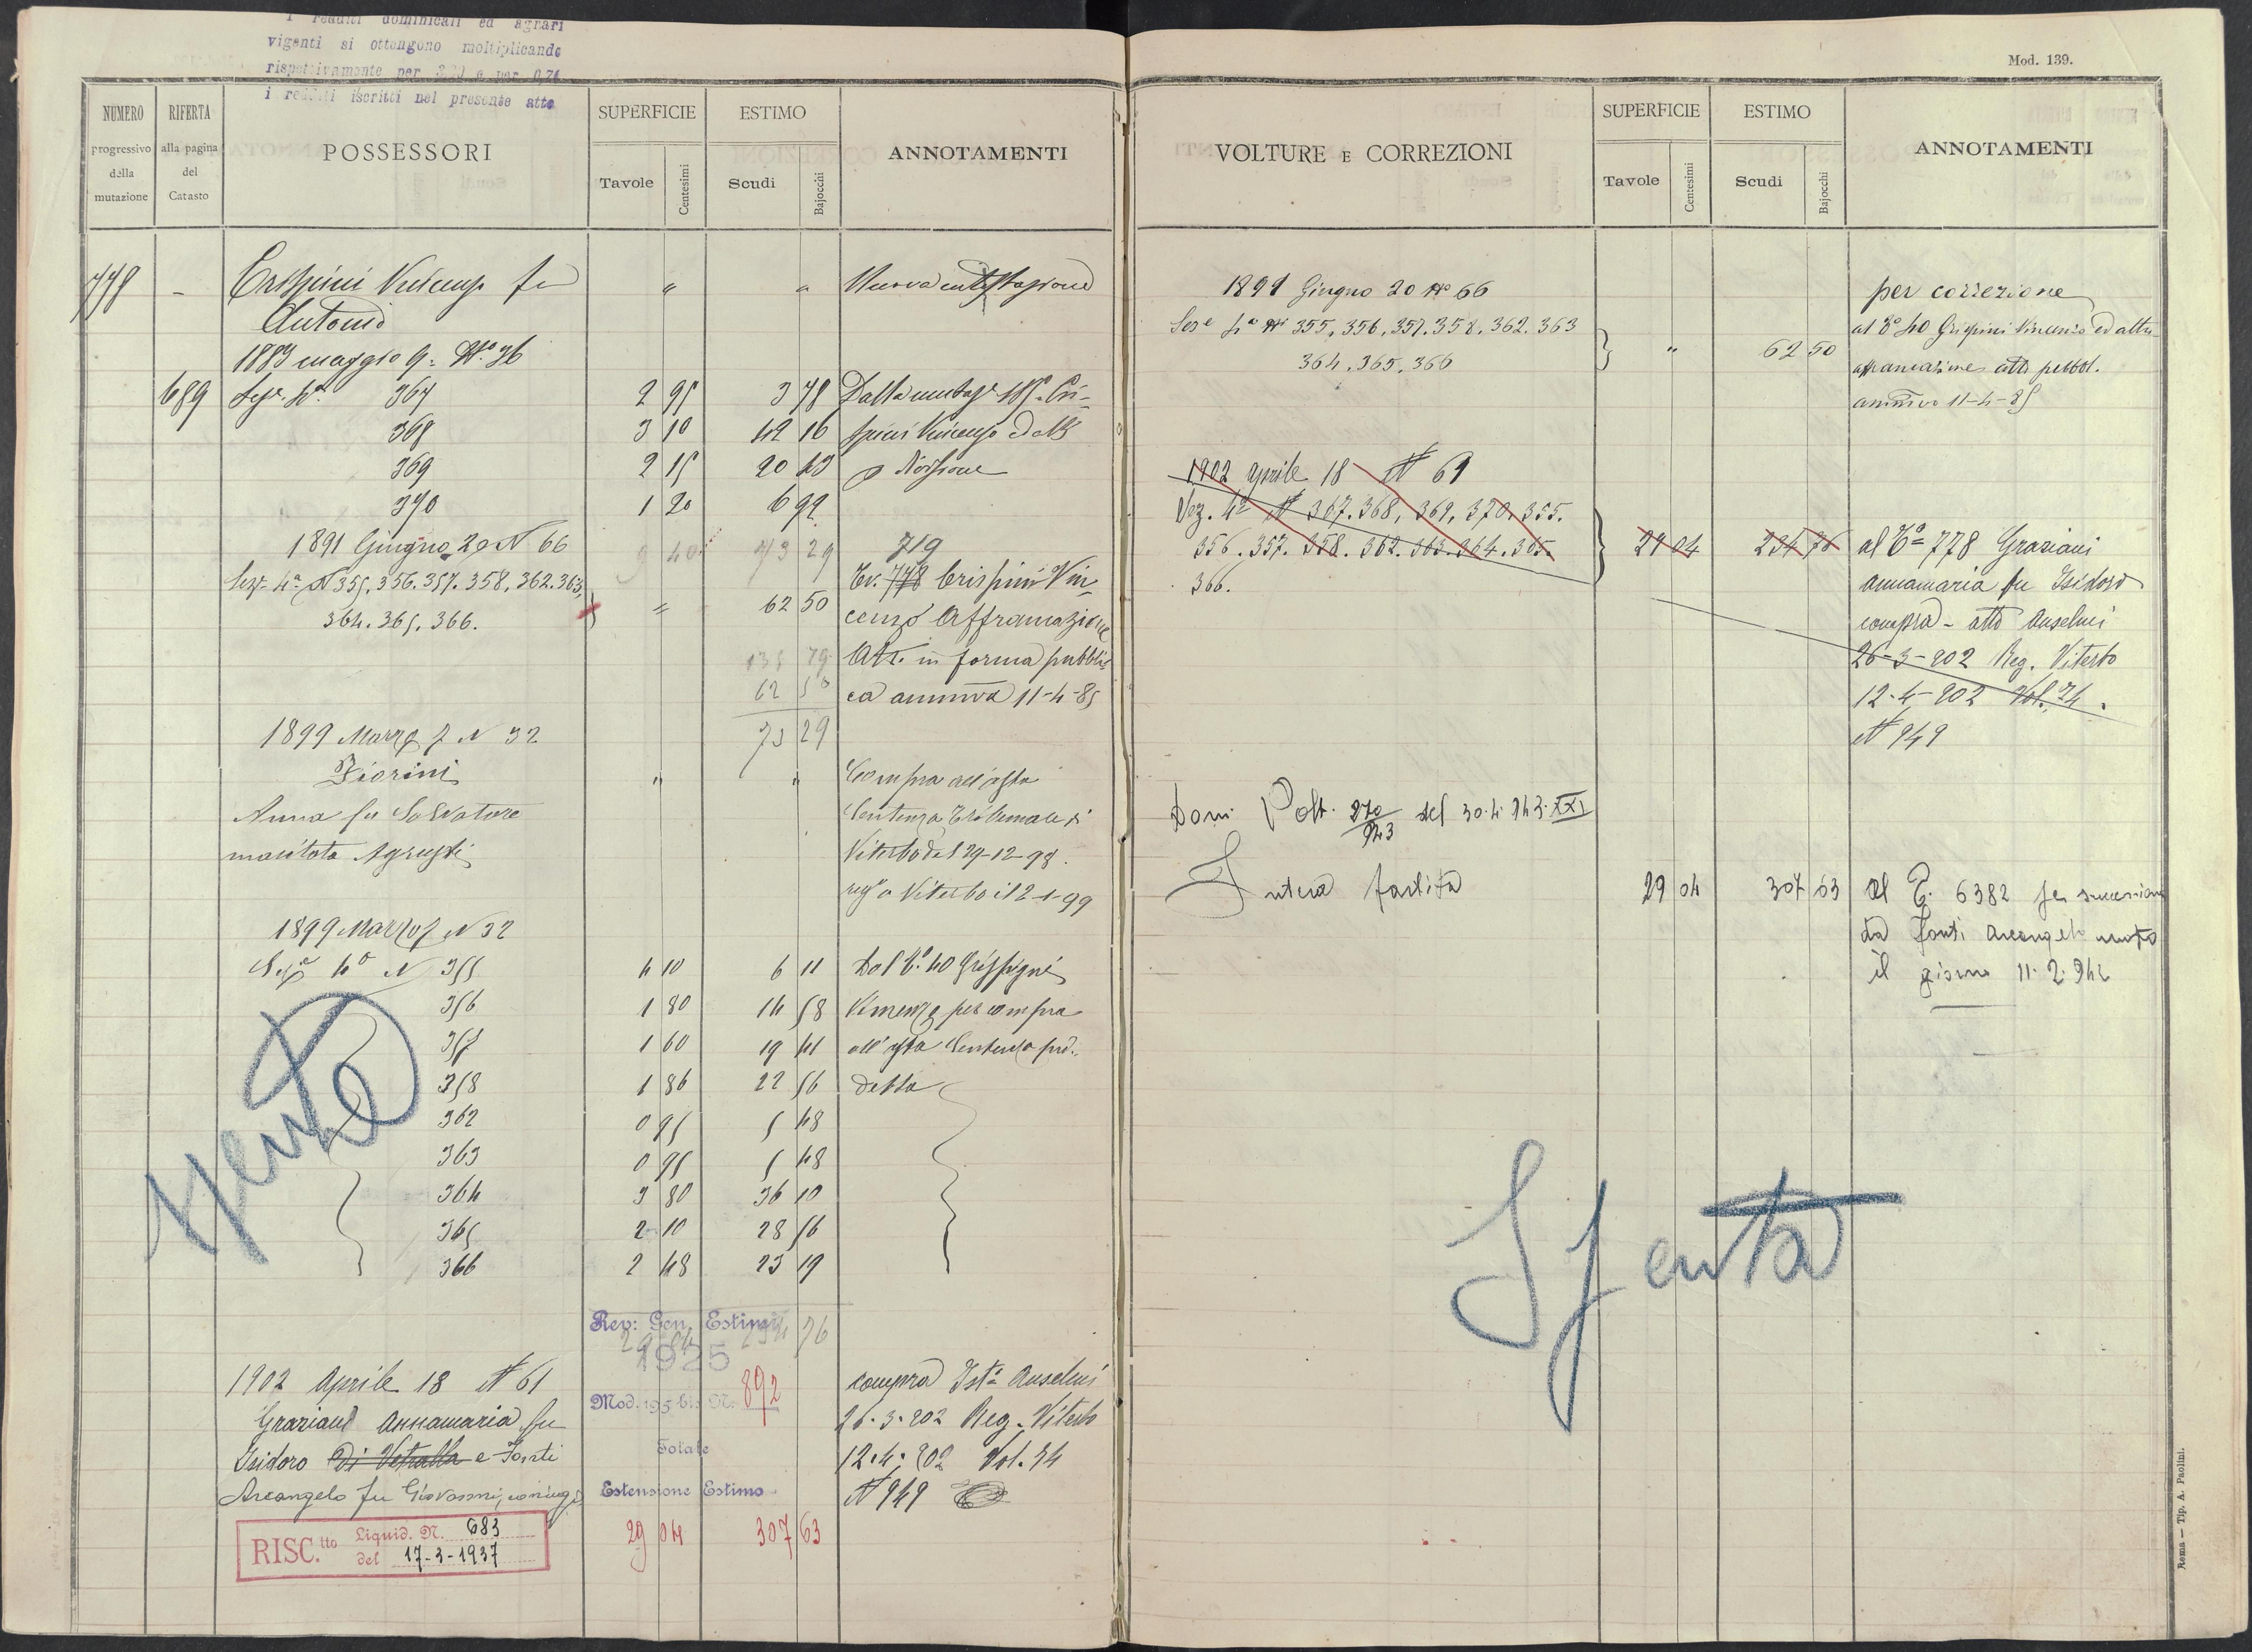 i redditi dominicali ed agrari
vigenti si ottengono moltiplicando
rispettivamente per 3,20 e per 0,74
i redditi iscritti nel presente atto
NUMERO progressivo della mutazione
RIFERTA alla pagina del Catasto
POSSESSORI
SUPERFICIE
Tavole Centesimi
ESTIMO
Scudi Bajocchi
ANNOTAMENTI
778 - Crispini Vincenzo fu " " Nuova intestazione
Antonio
1883 maggio 9. N.° 36
689 Sez. 4a 367 2 95 3 78 Dalla
368 3 10 42 16 Vincenzo ed altri
369 2 15 20 43 Divisione
370 1 20 6 92
1891 Giugno 20 N 66 9 40 73 29 719
Sez. 4a N 355. 356. 357. 358. 362. 363, Tr. 778 Crispini Vin-
364. 365. 366. " 62 50 cenzo Affrancazione
135 79 Att. in forma pubbli-
62 50 ca amm̄va 11-4-85
73 29
1899 Marzo 7 N 32
Fiorini " " Compra all'asta
Anna fu Salvatore Sentenza Tribunale di
maritata Agrusti Viterbo del 29-12-98.
reg° a Viterbo il 2-1-99
1899 Marzo 7 N 32
Seze 4a N 355 4 10 6 11 Dal T.° 40
356 1 80 14 58 Vincenzo per compra
357 1 60 19 41 all'asta Sentenza pre-
358 1 86 22 56 detta
362 0 95 5 48
363 0 95 5 48
364 3 80 36 10
365 2 10 28 56
366 2 48 23 19
Spenta
Rev: Gen. Estimi
29 04 234 76
1925
1902 Aprile 18 N 61 Mod. 195 bis N. 892 compra Ist° Anselmi
Graziani Annamaria fu 26-3-902 Reg. Viterbo
Isidoro Di Vetralla e Fonti Totale 12-4-902 Vol. 74
Arcangelo fu Giovanni, coniugi Estensione Estimo N 949
RISC.tto Liquid. N. 683
del 17-3-1937
29 04 307 63
Mod. 139.
VOLTURE E CORREZIONI
SUPERFICIE
Tavole Centesimi
ESTIMO
Scudi Bajocchi
ANNOTAMENTI
1891 Giugno 20 N° 66 per correzione
Seze 4a N 355, 356, 357. 358, 362. 363 al T° 40 Vincenzo ed altri
364. 365. 366 " 62 50 affrancazione atto pubbl.
amm̄vo 11-4-85
1902 Aprile 18 N 61
Sez. 4a N 367. 368, 369, 370, 355.
356. 357. 358. 362. 363. 364. 365. 29 04 234 76 al T° 778 Graziani
366. Annamaria fu Isidoro
compra - atto Anselmi
26-3-902 Reg. Viterbo
12-4-902 Vol. 74.
N 949
Dom. Volt. 270/943 del 30.4.943.XXI
Intera partita 29 04 307 63 Al T. 6382 per successione
da Fonti Arcangelo morto
il giorno 11.2.942
Spenta
Roma — Tip. A. Paolini.